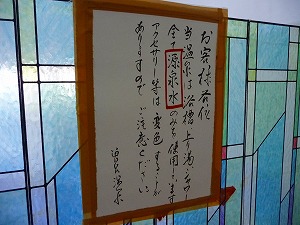 お客様各位
当温泉は浴槽上り湯シャワー
全源泉水のみを使用してます
アクセサリー等は変色することが
ありますのでご注意ください